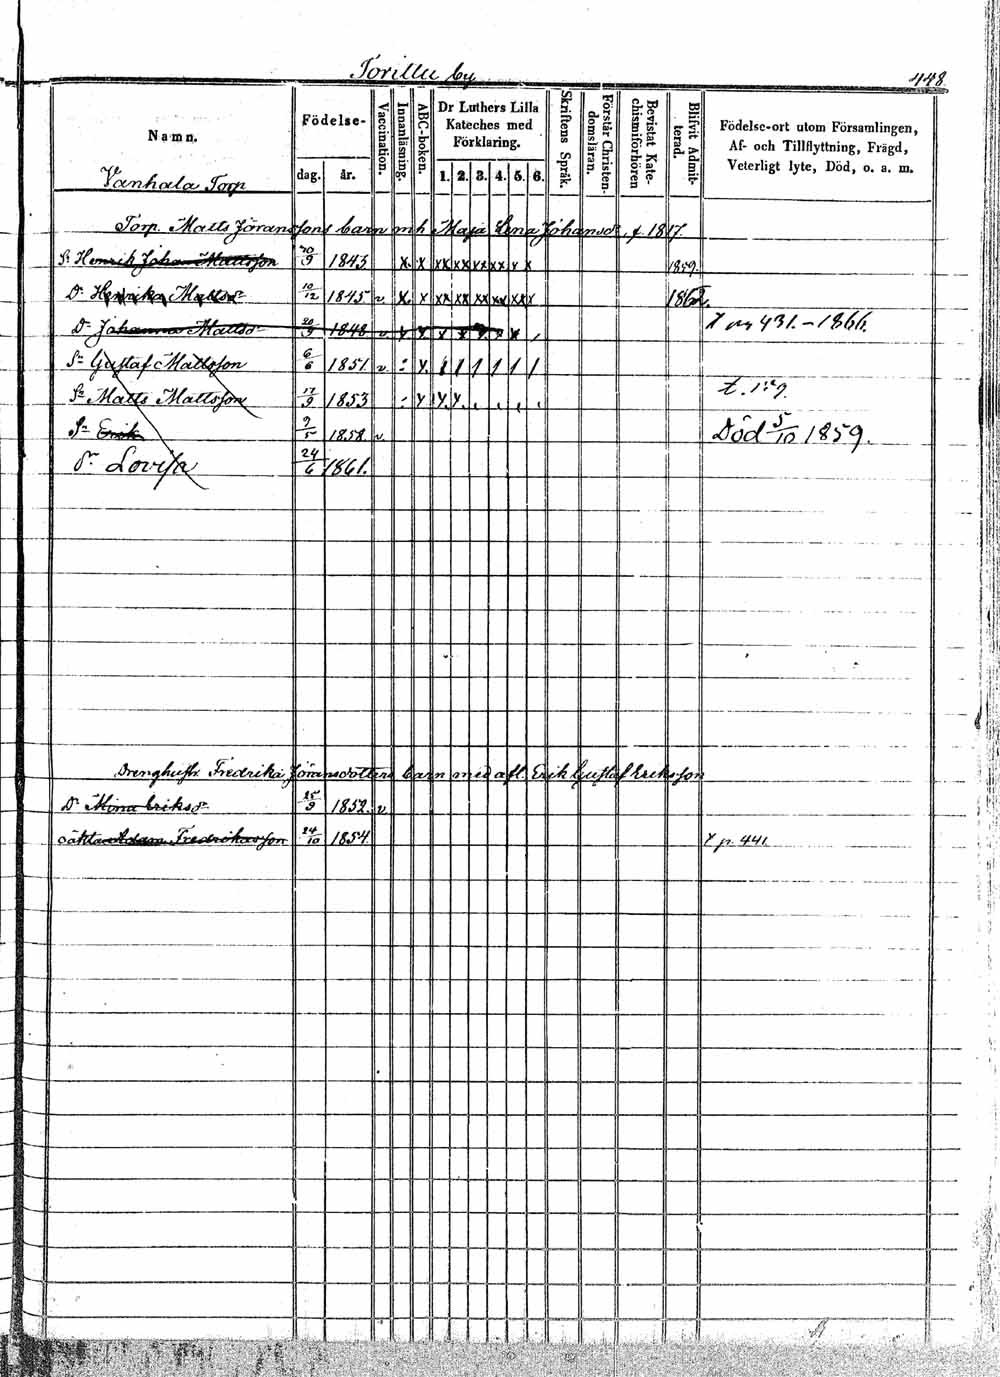 Torilla by 448
Namn. Födelse- dag. år. Vaccination. Innanläsning. ABC-boken. Dr Luthers Lilla Kateches med Förklaring. 1. 2. 3. 4. 5. 6. Skriftens Språk. Förstår Christendomsläran. Bevistat Katechismiförhören Blifvit Admitterad. Födelse-ort utom Församlingen, Af- och Tillflyttning, Frägd, Veterligt lyte, Död, o. a. m.
Vanhala Torp
Torp. Matts Jöranssons barn m h Maja Lena Johansdr, f 1817.
Sn Henrik Johan Mattsson 20/9 1843 x. x xx xx xx xx x x 1859.
Dr Henrika Mattsdr 10/12 1845 v. x. x xx xx xx xx xx x 1862.
Dr Johanna Mattsdr 20/9 1848 v. x. x x x x x 431.-1866.
Sn Gustaf Mattsson 6/6 1851. v.
Sn Matts Mattsson 17/9 1853
Sn Erik 9/5 1858. v. Död 5/10 1859.
Dr Lovisa 24/6 1861.
Drenghustr Fredrika Jöransdotters barn med afl. Erik Gustaf Eriksson
Dr Mina Eriksdr 25/9 1852. v
oäkta Adam Fredriksson 24/10 1854. p. 441.